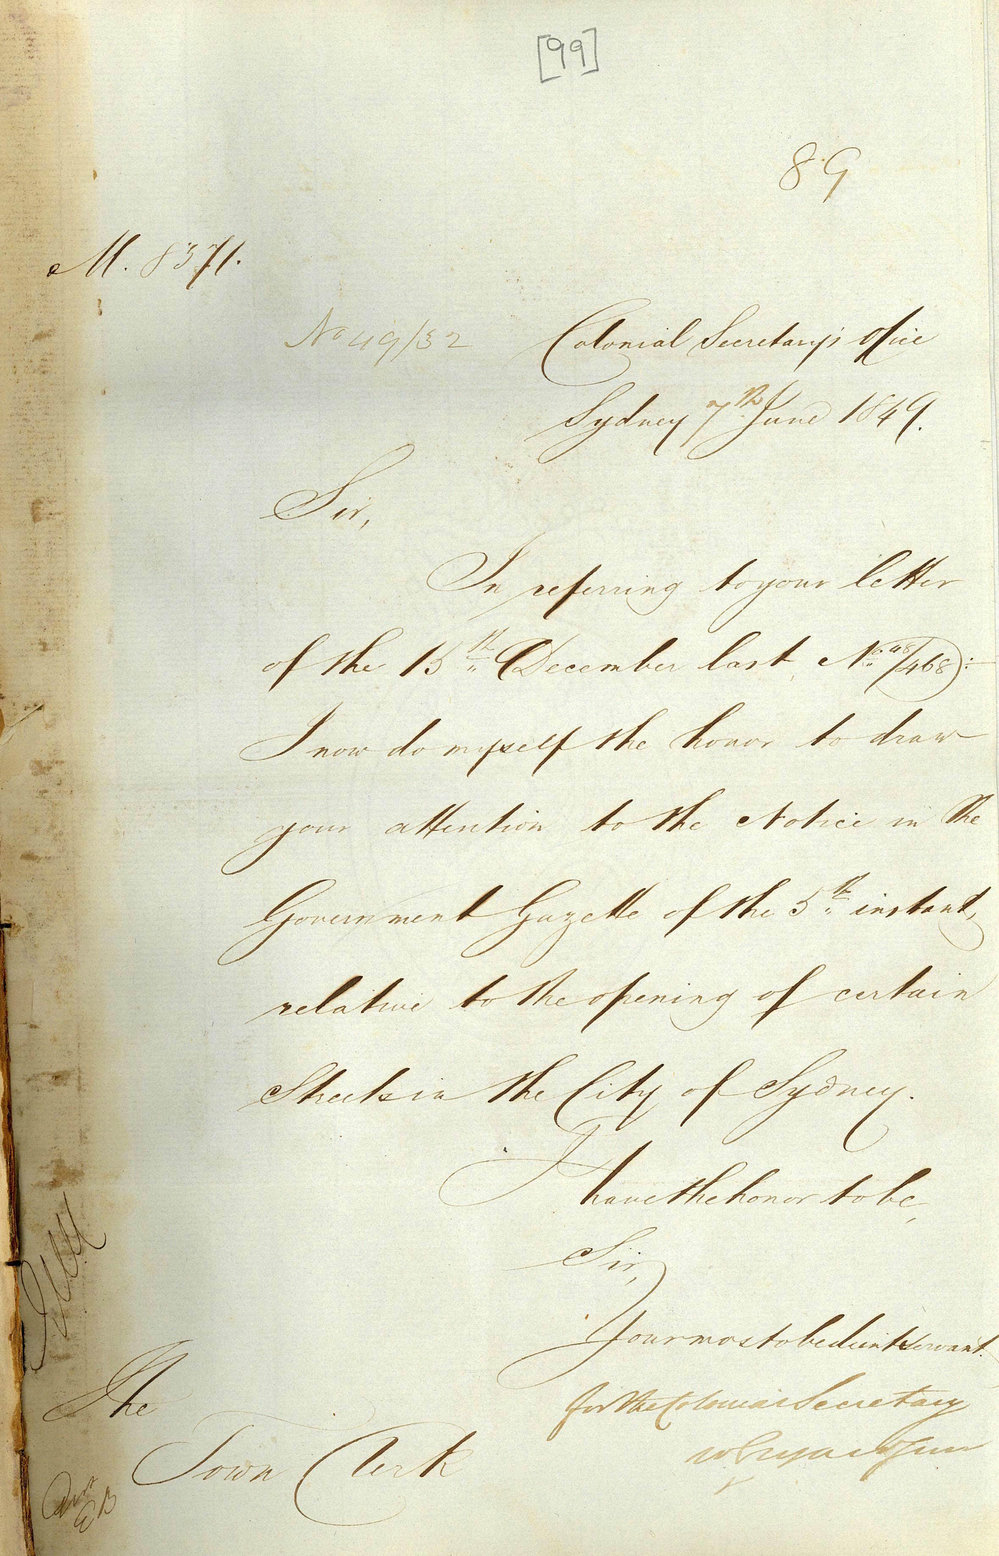 [99]
89
M. 8371.
No 49/32
Colonial Secretary's Office
Sydney 7th June 1849.
Sir,
In referring to your letter
of the 15th December last, No. 48/468:
I now do myself the honor to draw
your attention to the Notice in the
Government Gazette of the 5th instant,
relative to the opening of certain
Streets in the City of Sydney.
I have the honor to be,
Sir,
Your most obedient Servant.
for the Colonial Secretary
The
Town Clerk